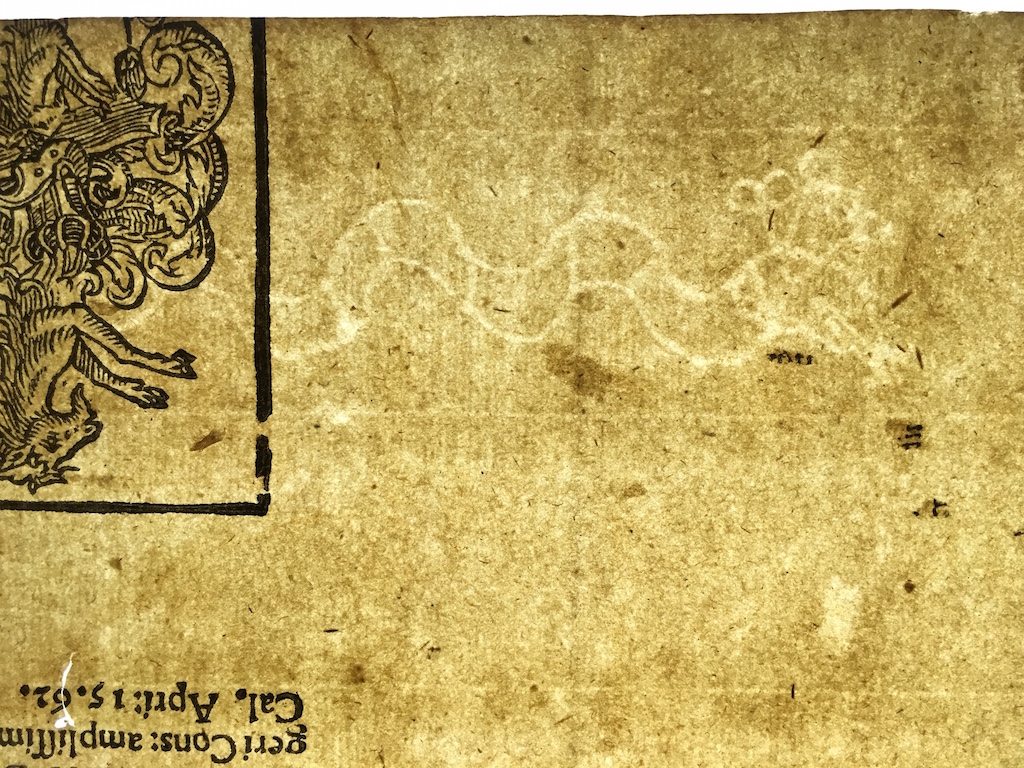 geri Cons: ampliſſim
Cal. Apri: 15.62.